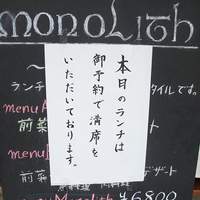 monoLith
本日のランチは
御予約で満席を
いただいております。
ランチ
タイルです。
menu
前菜
menu
前菜
デザート
¥6800